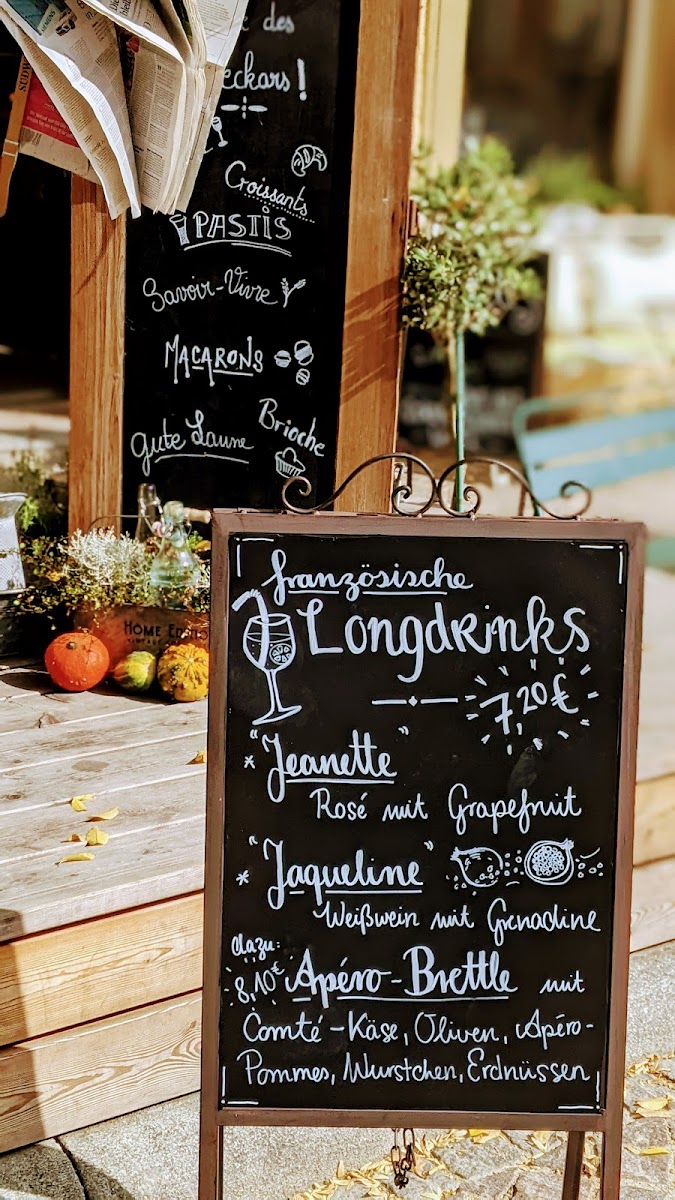 e des
eckars!
Croissants
PASTIS
Savoir-Vivre
MACARONS
Brioche
Gute Laune
HOME
französische
Longdrinks
7,20€
* "Jeanette"
Rosé mit Grapefruit
* "Jaqueline"
Weißwein mit Grenadine
dazu:
8,10€ Apéro-Brettle mit
Comté-Käse, Oliven, Apéro-
Pommes, Wurstchen, Erdnüssen